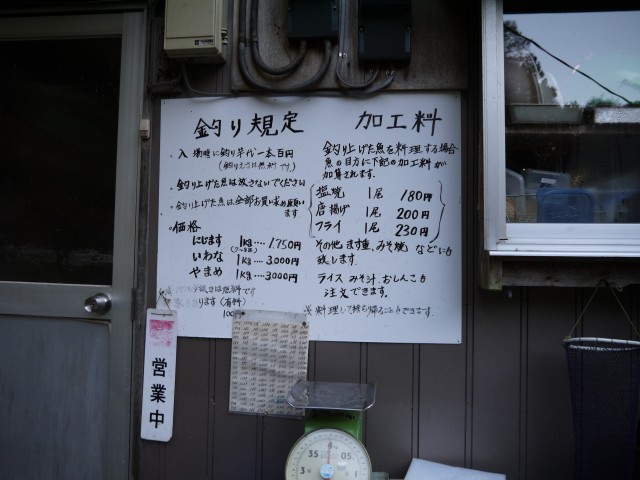 釣り規定
・入場時に釣り竿代一本百円
(釣りえさは無料です)
・釣り上げた魚は放さないでください
・釣り上げた魚は全部お買い求め願い
ます
・価格
にじます 1kg‥‥1.750円
いわな 1kg‥‥3000円
やまめ 1kg‥‥3000円
は無料です
ります(有料)
加工料
釣り上げた魚を料理する場合
魚の目方に下記の加工料が
加算されます。
塩焼 1尾 180円
唐揚げ 1尾 200円
フライ 1尾 230円
その他 ます重、みそ焼 などにも
致します.
ライス みそ汁.おしんこも
注文できます。
※料理して持ち帰ることもできます.
営業中
0
35
5